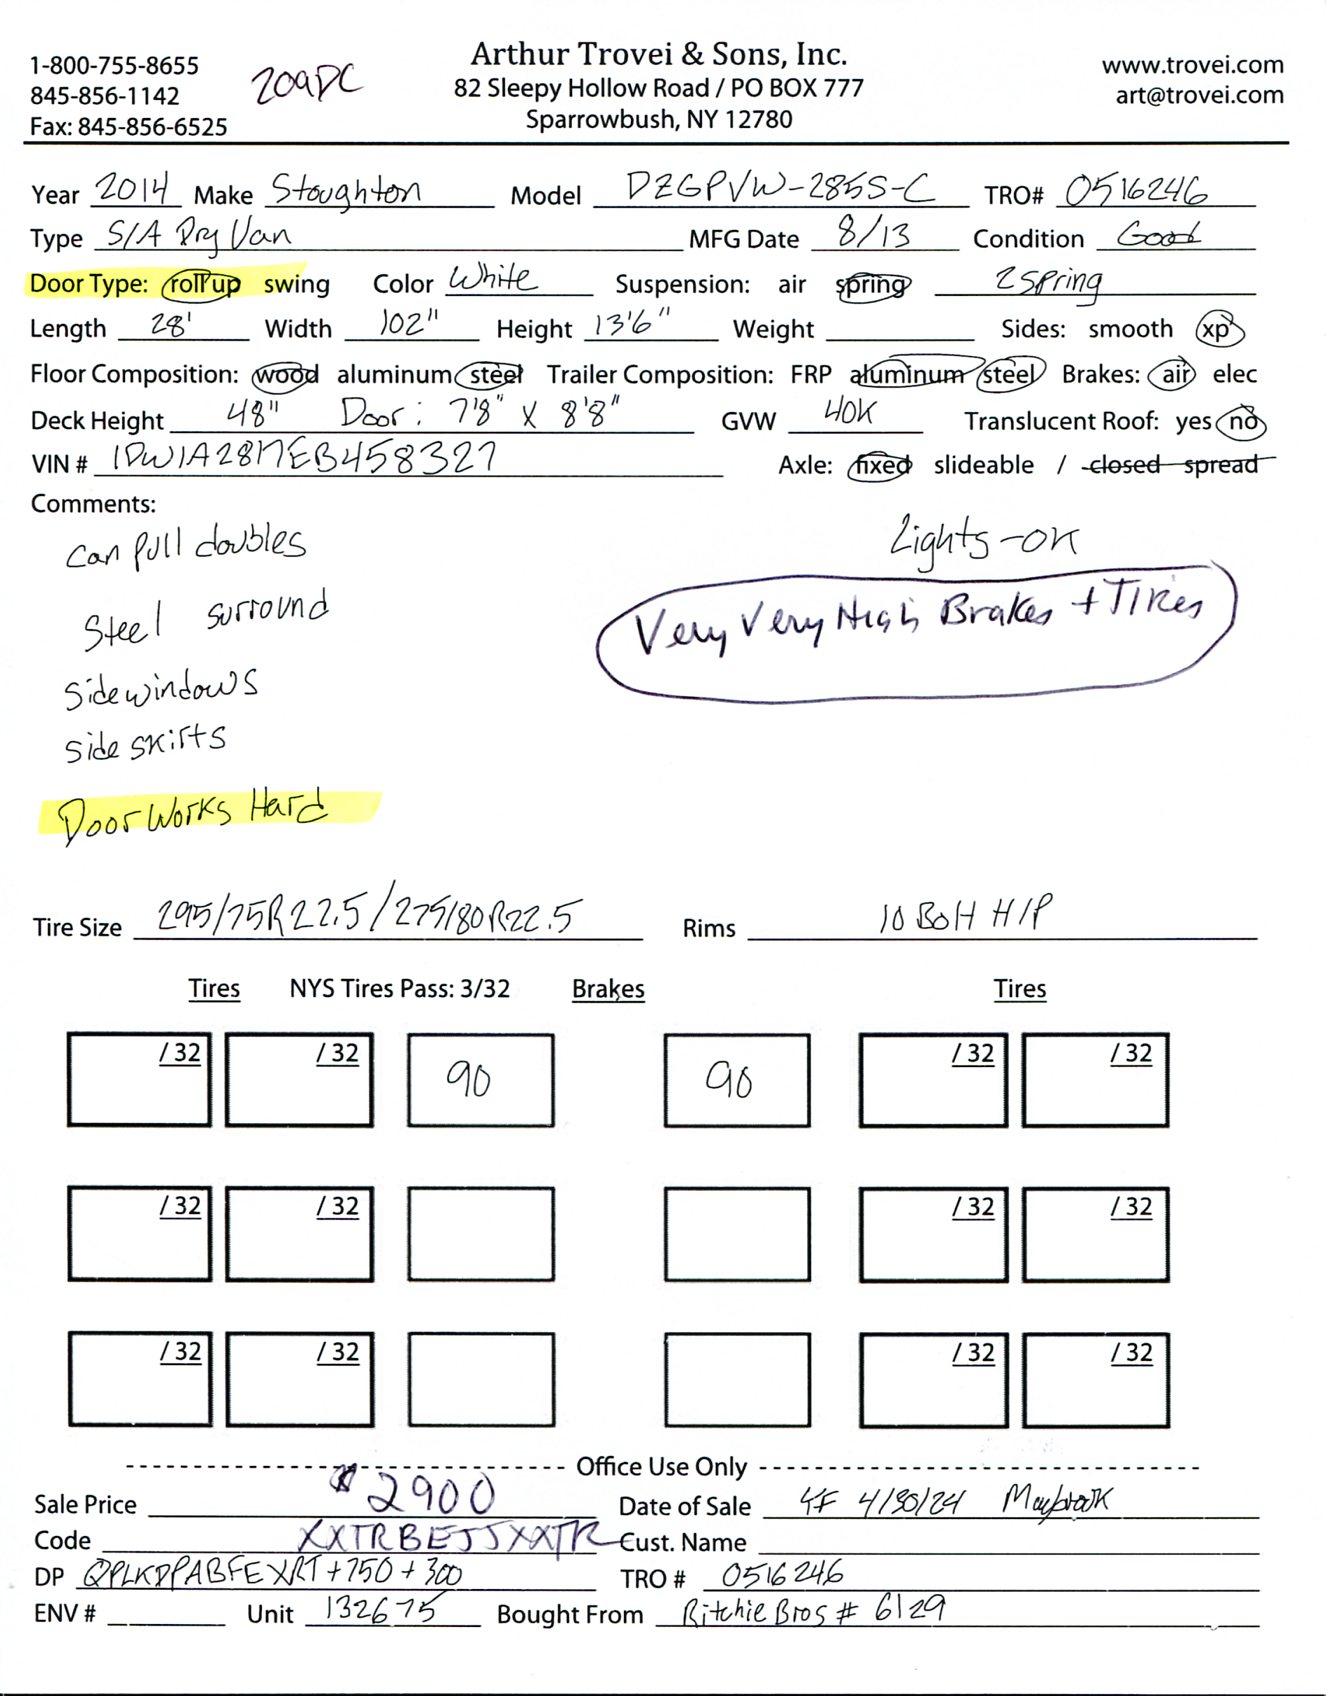 Arthur Trovei & Sons, Inc.
1-800-755-8655 82 Sleepy Hollow Road / PO BOX 777 www.trovei.com
845-856-1142 209DC Sparrowbush, NY 12780 art@trovei.com
Fax: 845-856-6525
Year 2014 Make Stoughton Model DZGPVW-285S-C TRO# 0516246
Type S/A Dry Van MFG Date 8/13 Condition Good
Door Type: roll up swing Color White Suspension: air spring 2 spring
Length 28' Width 102" Height 13'6" Weight Sides: smooth xp
Floor Composition: wood aluminum steel Trailer Composition: FRP aluminum steel Brakes: air elec
Deck Height 48" Door: 7'8" X 8'8" GVW 40K Translucent Roof: yes no
VIN # 1DW1A2817EB458327 Axle: fixed slideable / closed spread
Comments:
can pull doubles Lights-OK
Steel surround Very Very High Brakes + Tires
Sidewindows
side skirts
Door Works Hard
Tire Size 295/75R22.5/275/80R22.5 Rims 10 Bolt H/P
Tires NYS Tires Pass: 3/32 Brakes Tires
/ 32 / 32 90 90 / 32 / 32
/ 32 / 32 / 32 / 32
/ 32 / 32 / 32 / 32
Office Use Only
Sale Price $2900 Date of Sale YF 4/30/24 Maybrook
Code XXTRBEJJXXTR Cust. Name
DP QPLKDPABFEXRT+750+300 TRO # 0516246
ENV # Unit 132675 Bought From Ritchie Bros # 6129